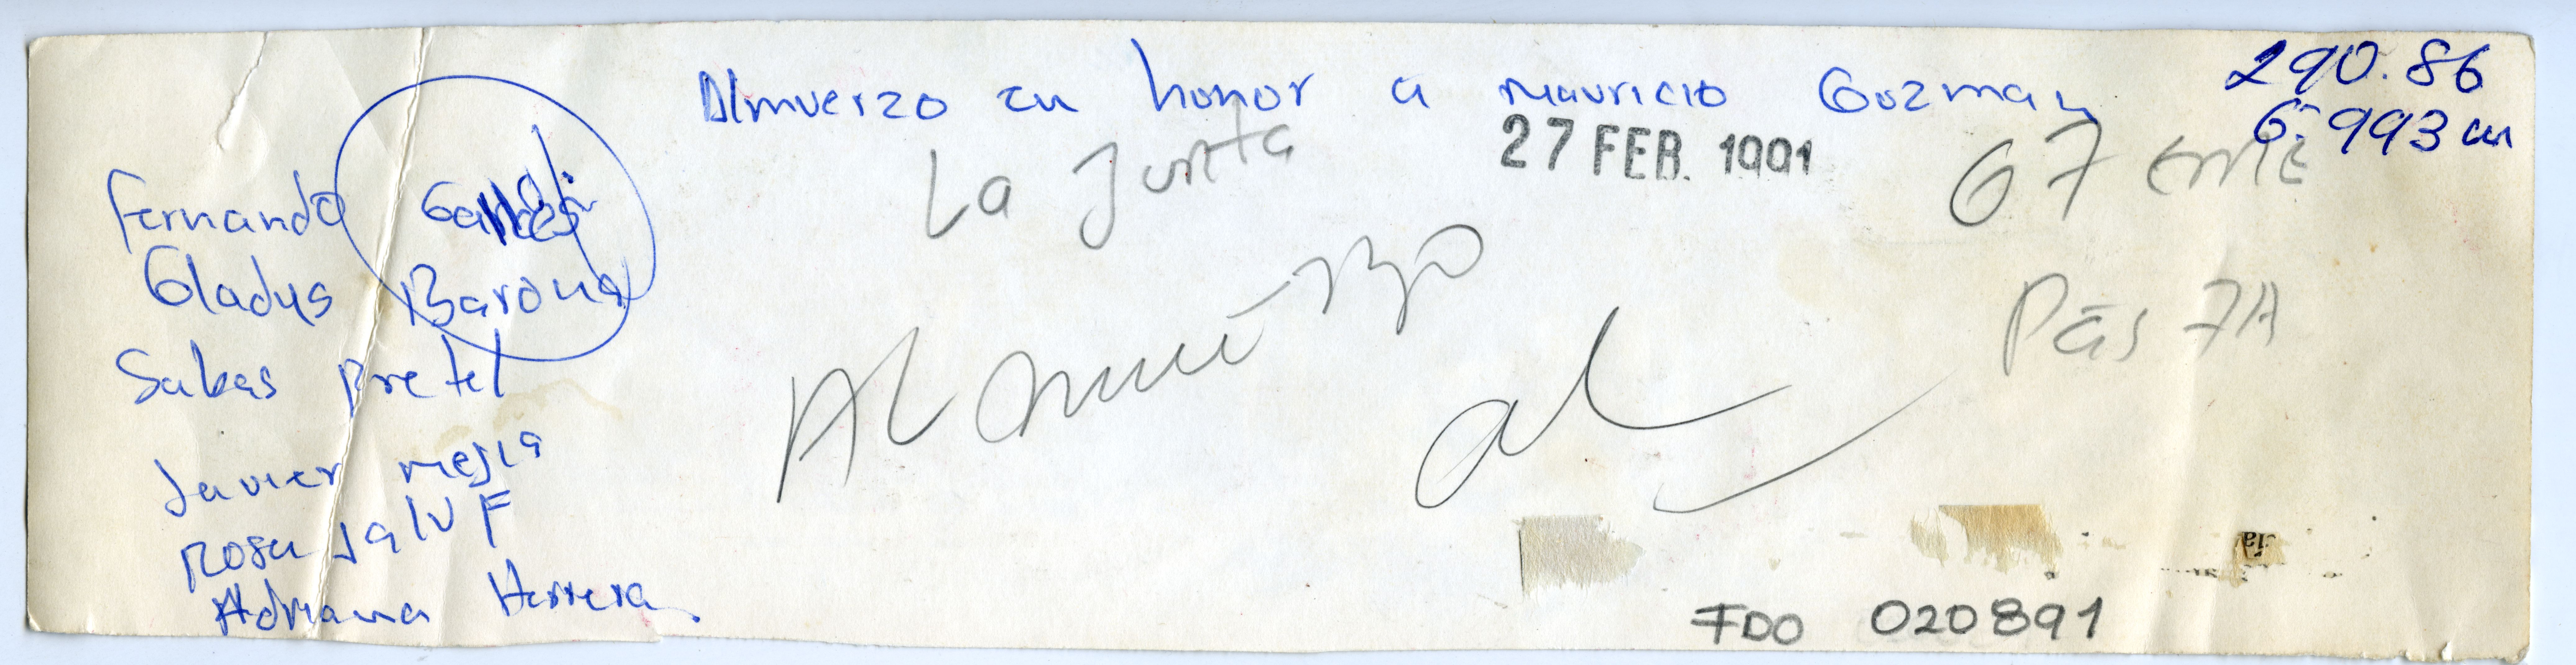 Almuerzo en honor a Mauricio Guzman
290.86
6.993 cm
La Junta
27 FEB. 1991
67 EME
Pás 7A
Fernando
Gladys Barona
Sabas Pretel
Javier mejia
Rosa JalUF
Adriana Herrera
Almuerzo
al
FDO 020891